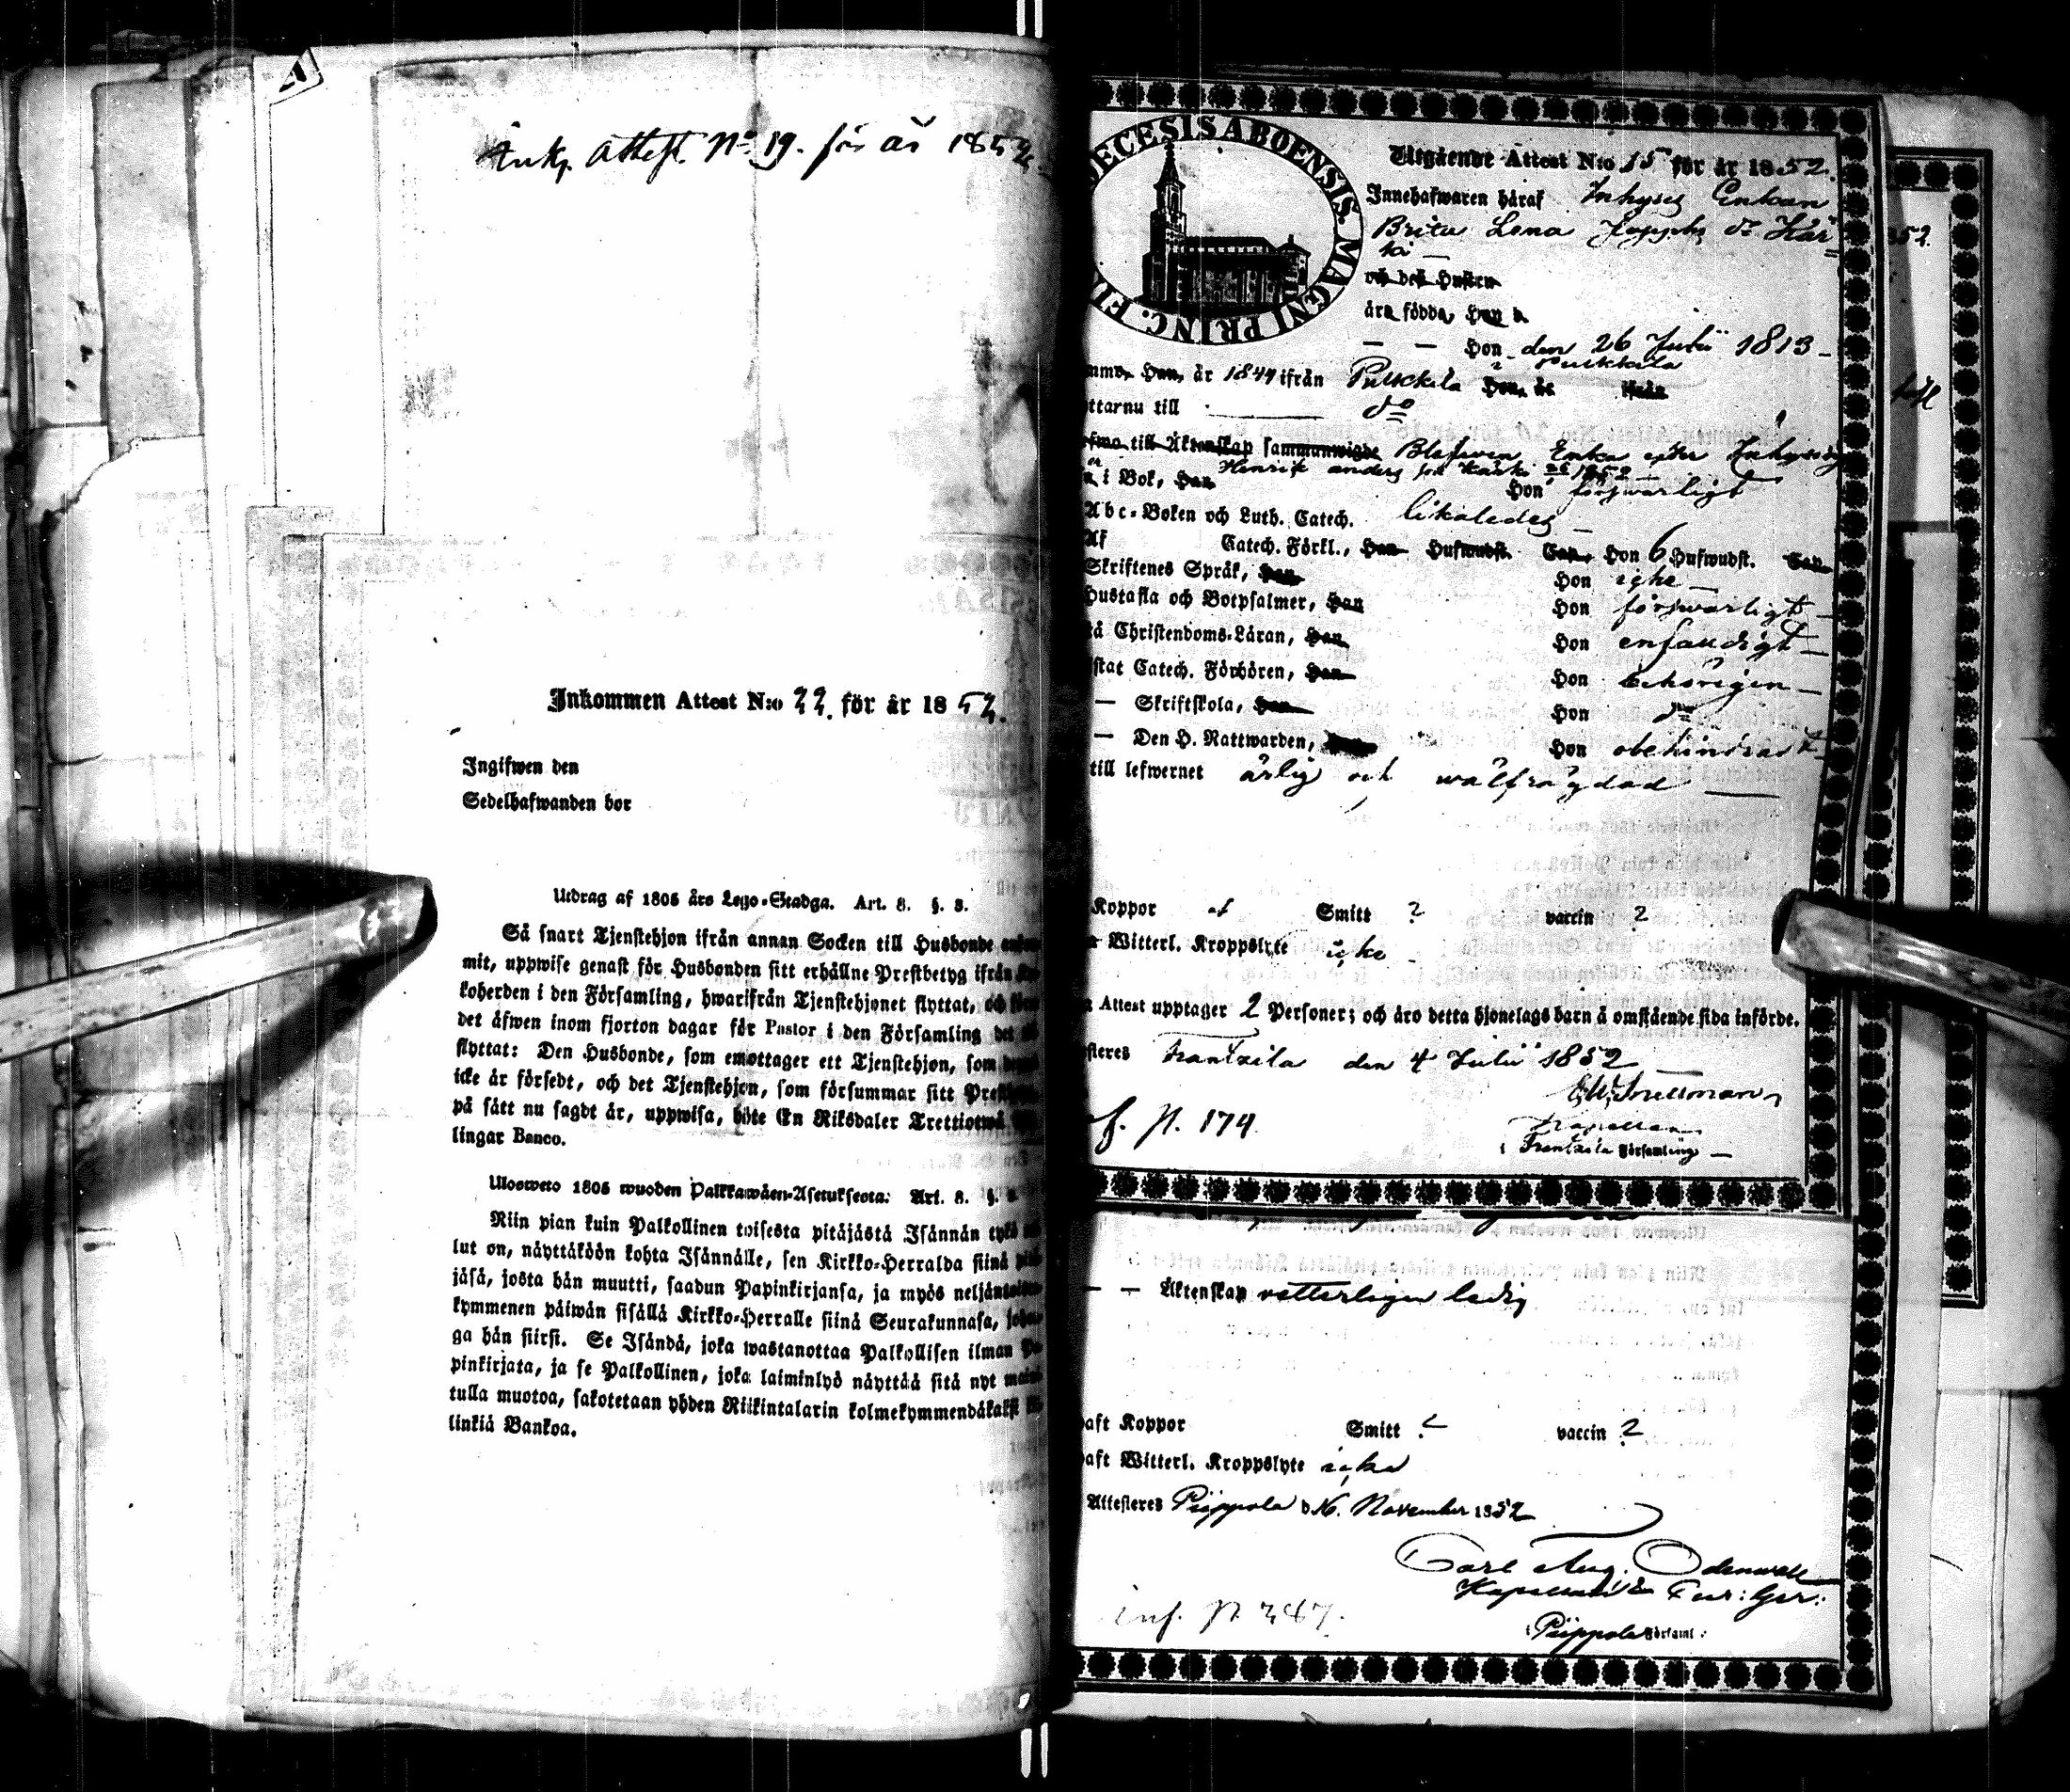 Ink. Attest No 19. för år 1852.
Inkommen Attest N:o 22. för år 1852.
Ingifwen den
Sedelhafwanden bor
Utdrag af 1805 års Lego-Stadga. Art. 8. §. 3.
Så snart Tjenstehjon ifrån annan Socken till Husbonde
mit, uppwise genast för Husbonden sitt erhållne Prestbetyg ifrån
koherden i den Församling, hwarifrån Tjenstehjonet flyttat, och
det åfwen inom fjorton dagar för Pastor i den Församling det
flyttat: Den Husbonde, som emottager ett Tjenstehjon, som
icke är försedt, och det Tjenstehjon, som försummar sitt
på sått nu sagdt år, uppwisa, böte En Riksdaler Trettiotwå
lingar Banco.
Ulosweto 1805 wuoden Palkkawåen-Asetuksesta: Art. 8. §.
Niin pian kuin Palkollinen toisesta pitäjästä Isännän tykö
lut on, näyttäköön kohta Isännälle, sen Kirkko-Herralda siinä
jäsä, josta hän muutti, saadun Papinkirjansa, ja myös
kymmenen päiwän sisällä Kirkko-Herralle siinä Seurakunnasa,
ga hän siirsi. Se Isändä, joka wastanottaa Palkollisen ilman
pinkirjata, ja se Palkollinen, joka laiminlyö näyttää sitä nyt
tulla muotoa, sakotetaan yhden Riikintalarin kolmekymmendäkaksi
linkiä Bankoa.
ECESIS ABOENSIS. MAGNI PRINC.
Utgående Attest N:o 15 för år 1852.
Innehafwaren håraf Inhyses Enkan
Brita Lena Josephsdr Kär-
ki
och des Hustru
åro födda, Han
— — Hon den 26 Julii 1813
i Pulkkila
Han, år 1844 ifrån Pulckila Hon, år ifrån
ttarnu till do
till Äktenskap sammanwigde Blefwen Enka efter Inhyses
Henrik anders son Kärki 1852
i Bok, Han Hon förswarligt
Abc-Boken och Luth. Catech. likaledes
Af Catech. Förkl., Han Hufwudst. Hon 6 Hufwudst.
Skriftenes Språk, Han Hon icke
Hustafla och Botpsalmer, Han Hon förswarligt
Christendoms-Låran, Han Hon enfaldigt
stat Catech. Förhören, Han Hon behörigen
— Skriftskola, Han Hon do
— Den H. Nattwarden, Hon obehindrad
till lefwernet ärlig och wälfrägdad
Koppor af Smitt ? vaccin ?
Witterl. Kroppslyte icke
Attest upptager 2 Personer; och åro detta hjonelags barn å omstående sida införde.
steres Frantzila den 4 Julii 1852
E W Snellman
Kapellan
i Frantzila Församling
f. p. 174.
— — Äktenskap vetterligen ledig
aft Koppor Smitt ? vaccin ?
aft Witterl. Kroppslyte icke
Attesteres Piippola d. 16. November 1852
Carl Aug. Odenwall
Kapellan
i Piippola Församl:
inf. p 387.